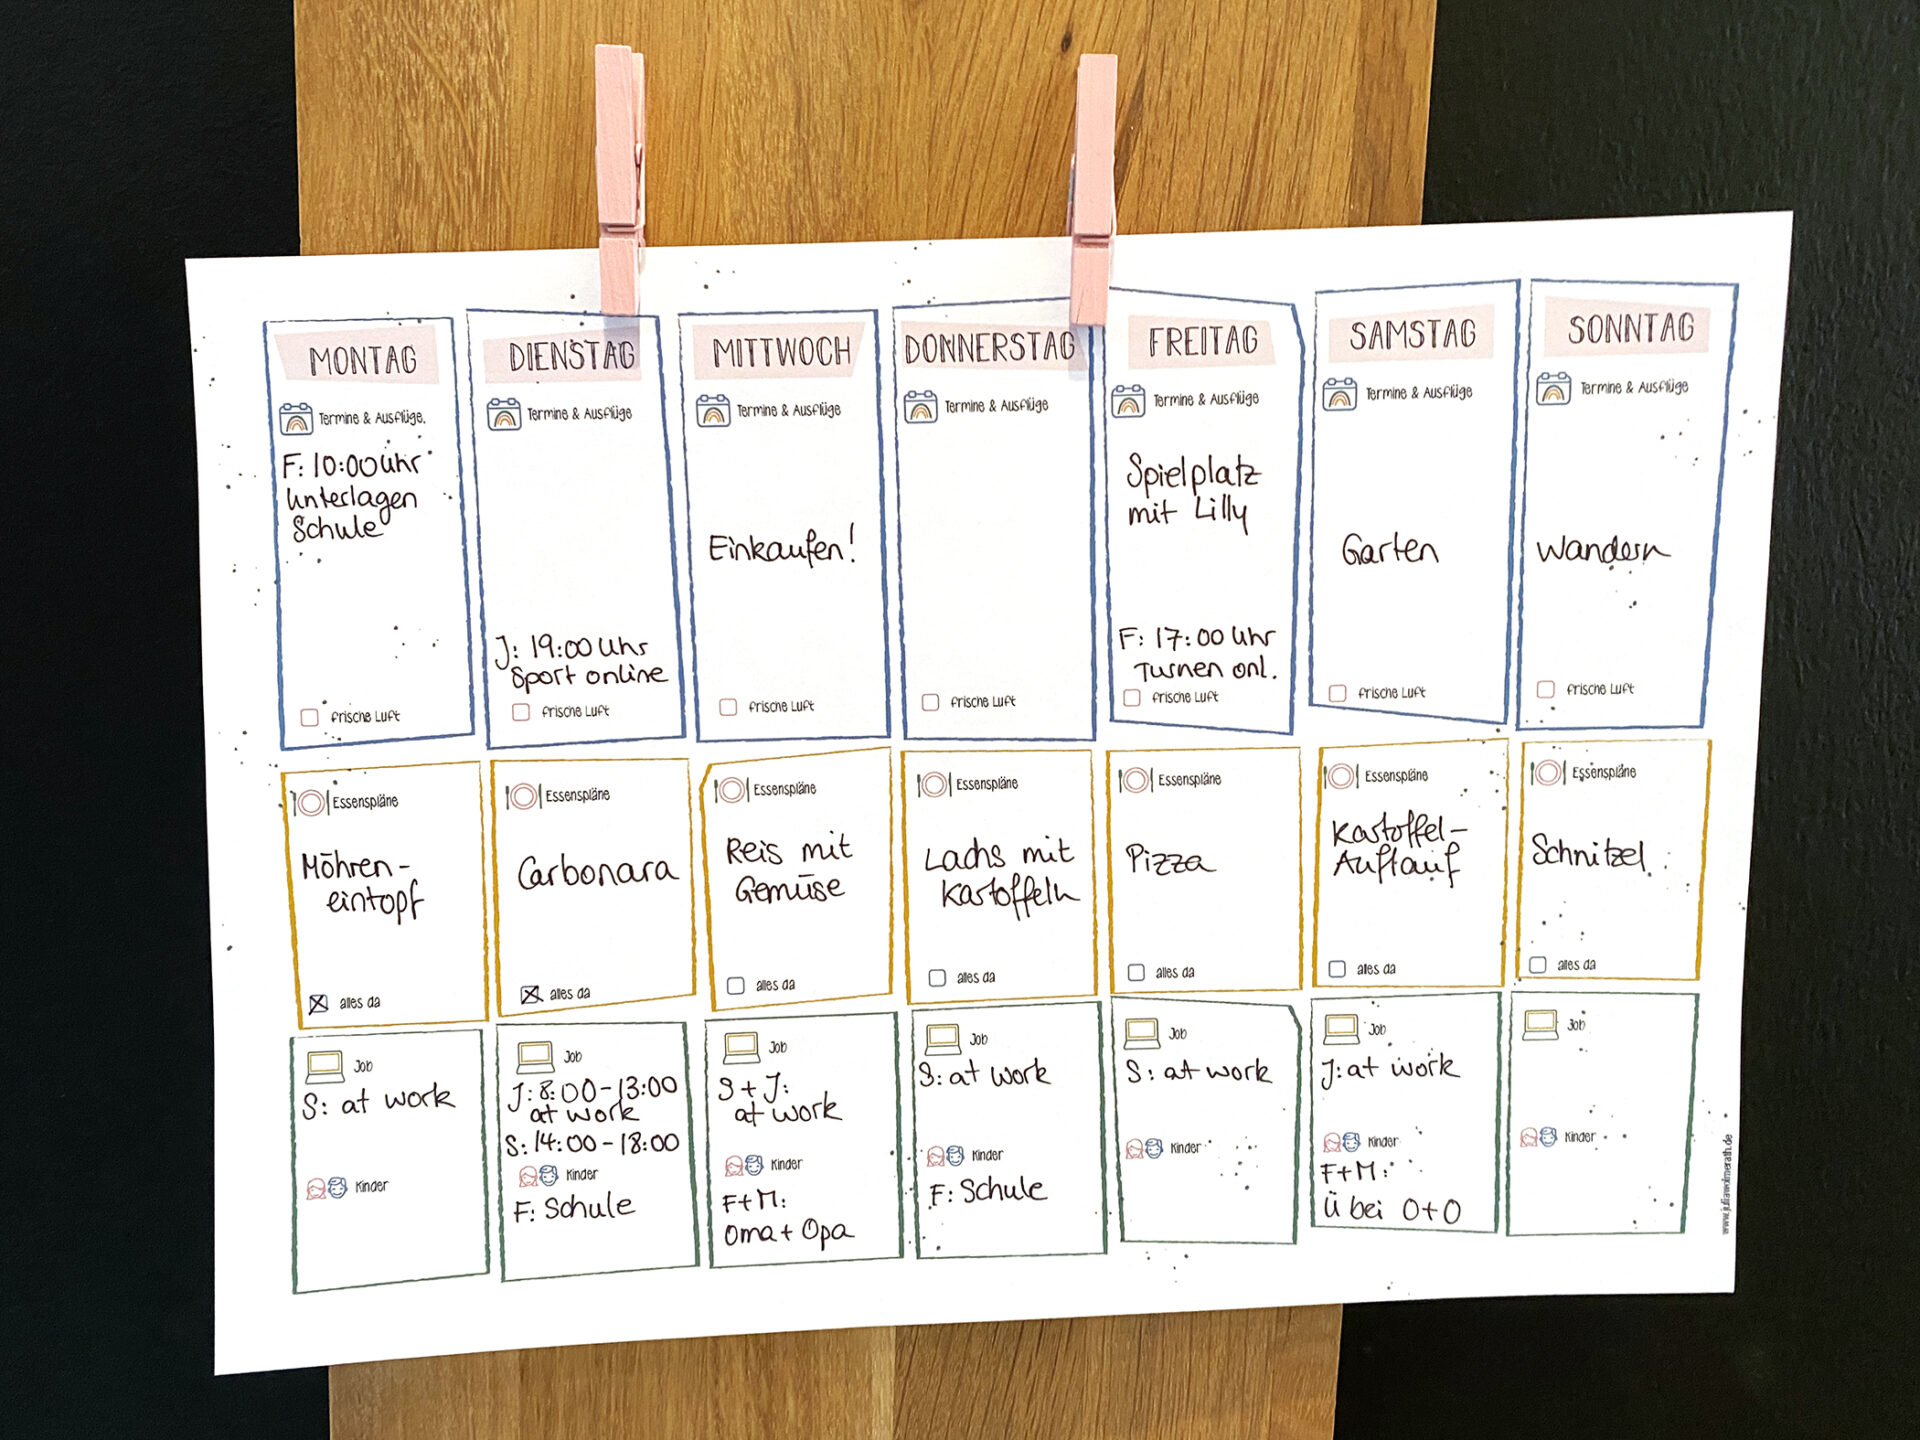 MONTAG
Termine & Ausflüge
F: 10:00 Uhr
Unterlagen
Schule
frische Luft
DIENSTAG
Termine & Ausflüge
J: 19:00 Uhr
Sport online
frische Luft
MITTWOCH
Termine & Ausflüge
Einkaufen!
frische Luft
DONNERSTAG
Termine & Ausflüge
frische Luft
FREITAG
Termine & Ausflüge
Spielplatz
mit Lilly
F: 17:00 Uhr
Turnen onl.
frische Luft
SAMSTAG
Termine & Ausflüge
Garten
frische Luft
SONNTAG
Termine & Ausflüge
Wandern
frische Luft
Essenspläne
Möhren-
eintopf
alles da
Essenspläne
Carbonara
alles da
Essenspläne
Reis mit
Gemüse
alles da
Essenspläne
Lachs mit
Kartoffeln
alles da
Essenspläne
Pizza
alles da
Essenspläne
Kartoffel-
Auflauf
alles da
Essenspläne
Schnitzel
alles da
Job
S: at work
Kinder
Job
J: 8:00-13:00
at work
S: 14:00-18:00
Kinder
F: Schule
Job
S + J:
at work
Kinder
F+M:
Oma + Opa
Job
S: at work
Kinder
F: Schule
Job
S: at work
Kinder
Job
J: at work
Kinder
F+M:
Ü bei O+O
Job
Kinder